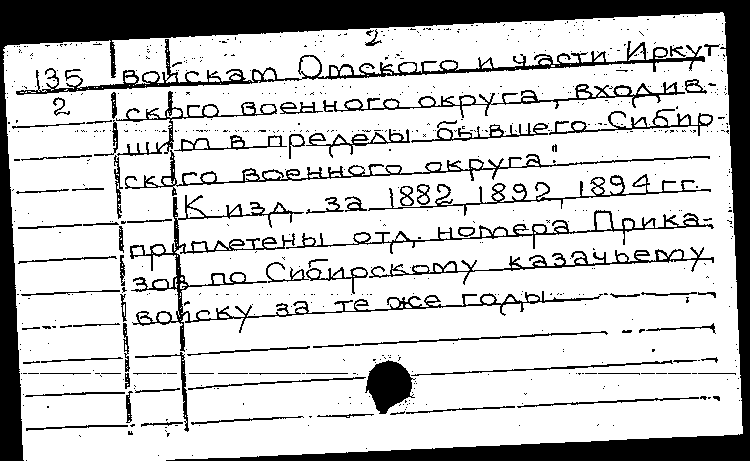 2
135 войскам Омского и части Иркут-
2 ского военного округа, входив-
шим в пределы бывшего Сибир-
ского военного округа".
К изд. за 1882, 1892, 1894 гг.
приплетены отд. номера Прика-
зов по Сибирскому казачьему
войску за те же годы.